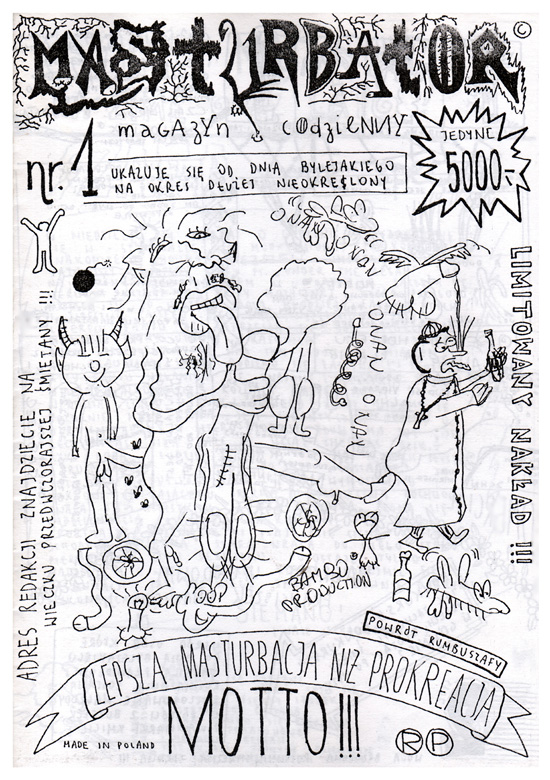 MASTURBATOR ©
magazyn codzienny
nr. 1
UKAZUJE SIĘ OD DNIA BYLEJAKIEGO
NA OKRES DŁUŻEJ NIEOKREŚLONY
JEDYNE
5000,-
ONAN ONAN
ONAN ONAN
LIMITOWANY NAKŁAD !!!
ADRES REDAKCJI ZNAJDZIECIE NA
WIECZKU PRZEDWCZORAJSZEJ ŚMIETANY !!!
BAMBO
PRODUCTION
POWRÓT RUMBUSZAFY
LEPSZA MASTURBACJA NIŻ PROKREACJA
MOTTO!!!
MADE IN POLAND
R P